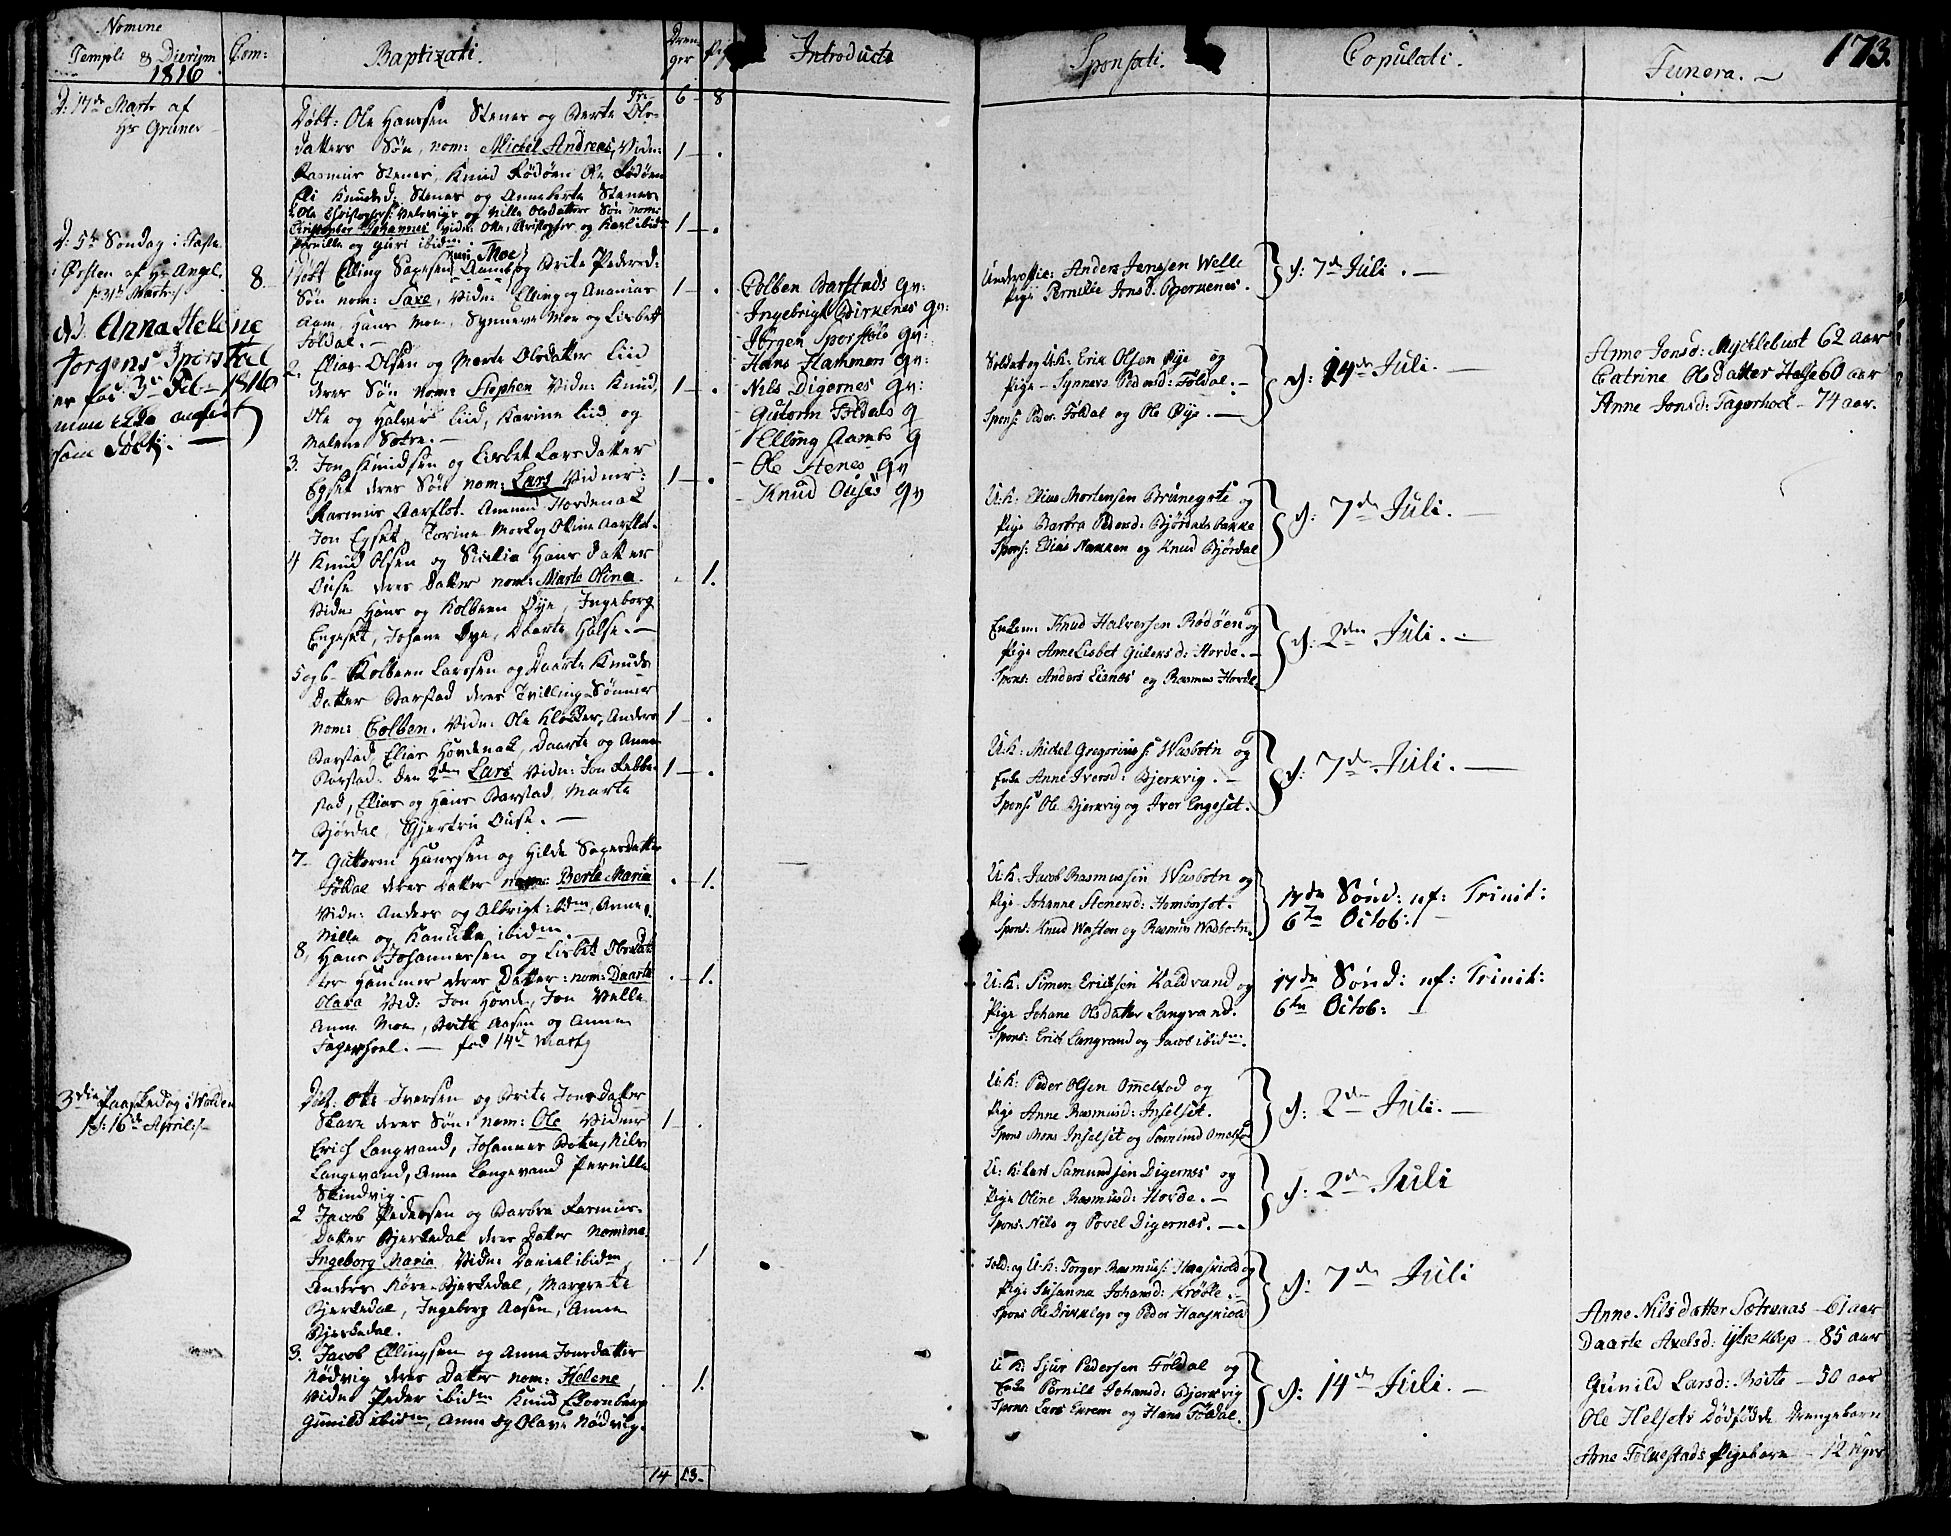 Nomine
Templi & Dierum
1816
Com:
Baptizati.
Dren
ger
Introducti
Sponsati.
Copulati.
Funera. —
173.
D: 17de Marts af
Hr Grüner
6 – 8
Døbt: Ole Hanssen Stenes og Berte Ols-
datters Søn, nom: Michel Andreas, Vidn:
1 – .
Rasmus Stenes, Knud Rødøen Ole Rødøen
Eli Knudsd: Stenes og Anne Berte Stenes
2 Ole Christophers: Velsvigs og Nille Olsdatters Søn nom:
Christopher Johannes Vidn: Otte, Christopher og Karl ibidm
1 – .
Pernille og Guri ibidm
D: 5te Søndag i Faste
i Ørsten af Hr Angel.
p: 31te Marts
8
Døbt Elling Saxesen Aambs og Brite Pedersd:
Moe
Søn nom: Saxe, Vidn: Elling og Ananias
1 – .
Aam, Hans Moe, Synneve Moe og Lisbet
Føldal. —
NB. Anna Heline
Jorgens Sporstøel
er fød 3de Feb– 1816
som Døbt: —
2. Elias Olsen og Marte Olsdatter Liid
deres Søn nom: Stephen Vidn: Knud,
1 – .
Ole og Halvor Liid, Karine Liid og
Malene Sætre. —
3. Jon Knudsen og Lisbet Larsdatter
Egset deres Søn nom: Lars Vidner:
1 – .
Rasmus Aarflot. Amund Hovdenak
Jon Egset, Torine Mork og Oline Aarflot.
4 Knud Olsen og Sicilia Hans datter
Ouse deres Datter nom: Marte Olina.
. 1.
Vidn: Hans og Kolbeen Øye, Ingeborg
Engeset, Johane Øye, Daarte Halse. —
5 og 6 – Kolbeen Larssen og Daarte Knuds
Datter Barstad deres Tvilling Sønner
nom: Colben. Vidn: Ole Kløkker, Anders
1 – .
Barstad Elias Hovdenak, Daarte og Anne
Barstad. Den 2den Lars Vidn: Jon Rebbe-
1 – .
stad, Elias og Hans Barstad, Marte
Bjørdal, Gjertru Ouse. —
7 – Guttorm Hanssen og Hilde Saxesdatter
Føldal deres Datter nom: Berte Maria
. 1.
Vidn: Anders og Albrigt ibidm, Anne,
Nille og Kanuta ibidm. —
8, Hans Johannessen og Lisbet Olsdat
ter Hammer deres Datter: nom: Daarte
. 1.
Olava Vid: Jon Hovde, Jon Velle
Anne Moe, Brite Aasen og Anne
Fagerhoel. — fød 14de Marts
3die Paaskedag i Wolden
p: 16de April
Døbt. Otte Iversen og Brite Jonsdatter
Skare deres Søn: nom: Ole Vidner
1 .
Erich Langvand, Johannes Botn, Nils
Langevand, Anne Langevand Pernille
Skindvig.
2 Jacob Pedersen og Barbra Rasmus-
Datter Bjerkedal deres Datter nomina
Ingeborg Maria Vidn: Daniel ibidm,
. 1
Anders Nøre-Bjerkedal, Margrete
Bjerkedal, Ingeborg Aasen, Anne
Bjerkedal.
3. Jacob Ellingsen og Anna Jonsdatter
Nødvig deres Datter nom: Helene,
. 1.
Vidn: Peder ibidm Knud Etornberg
Gunild ibidm, Anne og Olave Nødvig.
14 13.
Colben Barstads Qv:
– Ingebrigt Birkenes Qv:
– Jørgen Sporstøls Qv:
– Hans Hammers Qv:
– Niels Digernes Qv:
– Gutorm Foldals Q
– Elling Aambs Q
– Ole Stenes Qv
– Knud Ouses Qv
Underoffic: Anders Jensen Welle
Pige Pernille Jonsd: Bjerknes.
d: 7de Juli. —
Soldat og U.K: Erik Olsen Øije og
Pige – Synneva Pedersd: Foldal. —
Spons: Peder Føldal og Ole Øije. —
d: 14de Juli. —
U.K: Elias Mortensen Brunegste og
Pige Barbra Pedersd: Bjørdalsbakke
Spons: Elias Nakken og Knud Bjørdal
d: 7de Juli. —
Enkem: Knud Halvorsen Rødøen og
Pige Anne Lisbet Guleksd: Hovde. —
Spons: Anders Lianes og Rasmus Hovde.
d: 2den Juli. —
U.K: Michel Gregorius s: Wasbotn og
Enke Anne Iversd: Bjerkvig. —
Spons: Ole Bjerkvig og Iver Engeset.
d: 7de Juli. —
U.K: Jacob Rasmussen Wasbotn og
Pige Johanne Stenersd: Homborset.
Spons: Knud Wasten og Rasmus Wadbotn.
17de Sønd: af: Trinit:
6te Octob: –
U.K: Simen Ericksen Kaldvand og
Pige Johane Olsdatter Langvand.
Spons: Erick Langvand og Jacob ibidm.
17de Sønd: af: Trinit:
6te Octob:
U.K: Peder Olsen Omelfod og
Pige Anne Rasmusd: Inselset.
Spons Mons Inselset og Samund Omelfod
d: 2de Juli. —
U.K: Lars Samundsen Digernes og
Pige Oline Rasmusd: Hovde. —
Spons: Nils og Povel Digernes. —
d: 2de Juli
Sold: og U.K: Torger Rasmus s: Haaskiold og
Pige Susanna Johansd: Krøvle. —
Spons Ole Drikklep og Peder Haaskiold
d: 7de Juli
U.K: Sjur Pedersen Føldal og
Enke Pernille Johansd: Bjerkvig
Spons: Lars Exrem og Hans Føldal.
d: 14de Juli. —
Anne Jonsd: Myklebust 62 aar
Catrine Olsdatter Halse 60 aar
Anne Jonsd: Fagerhoel – 74 aar.
Anne Nilsdatter Sætrenaas – 61 aar
Daarte Axelsd: Ytreklep – 85 aar
Gunild Larsd: Brøte – 50 aar
Ole Helsets Dødfødde Drengebarn
Arne Folkestads Pigebarn – 12 Uger